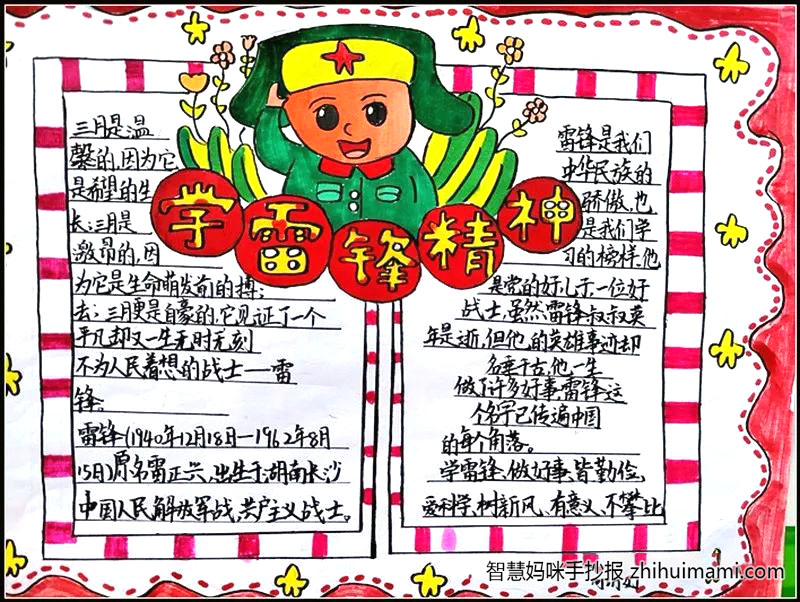 学雷锋精神
三月是温
馨的,因为它
是希望的生
长;三月是
激昂的,因
为它是生命萌发前的搏;
去;三月更是自豪的,它见证了一个
平凡却又一生无时无刻
不为人民着想的战士——雷
锋。
雷锋(1940年12月18日—1962年8月
15日)原名雷正兴,出生于湖南长沙
中国人民解放军战,共产主义战士。
雷锋是我们
中华民族的
骄傲,也
是我们学
习的榜样,他
是党的好儿子,一位好
战士,虽然雷锋叔叔英
年是逝,但他的英雄事迹却
名垂千古,他一生
做了许多好事,雷锋这
个名字已传遍中国
的每个角落。
学雷锋、做好事、皆勤俭,
爱科学,树新风,有意义,不攀比
智慧妈咪手抄报 zhihuimami.com